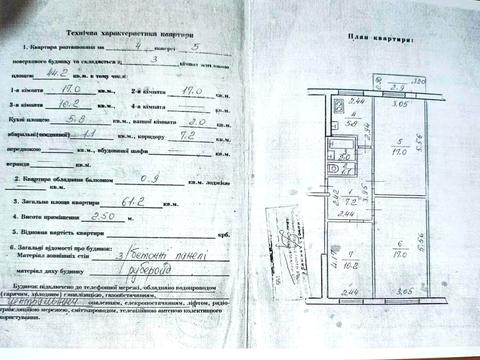 Технічна характеристика квартири
1. Квартира розташована на 4 поверсі 5
поверхового будинку та складається з 3 кімнат
площею 44.2 кв.м. в тому числі:
1-а кімната 17.0 кв.м., 2-а кімната 17.0 кв.м.
3-а кімната 10.2 кв.м., 4-а кімната кв.м.
Кухні площею 5.8 кв.м., ванної кімнати 2.0 кв.м.
вбиральні 1.1 кв.м., коридору 7.2 кв.м.
кв.м., вбудованої шафи кв.м.
веранди кв.м.
2. Квартира обладнана балконом 0.9 кв.м. лоджією
кв.м.
3. Загальна площа квартири 61.2 кв.м.
4. Висота приміщення 2.50 м.
5. Відновна вартість квартири крб.
6. Загальні відомості про будинок:
Матеріал зовнішніх стін з/бетонні панелі
матеріал даху будинку Рубероїд
Будинок підключено до телефонної мережі, обладнано водопроводом
(гарячим, холодним) каналізацією, газопостачанням,
центральним опаленням, електропостачанням, ліфтом, радіо-
трансляційною мережею, сміттєпроводом, телевізійною антеною колективного
користування.
План квартири:
2.9
2.44
3.05
4
5.8
2.94
5
17.0
5.56
2.0
1.1
2.42
1
7.2
3.95
2.44
7
10.2
6
17.0
5.56
2.44
3.05